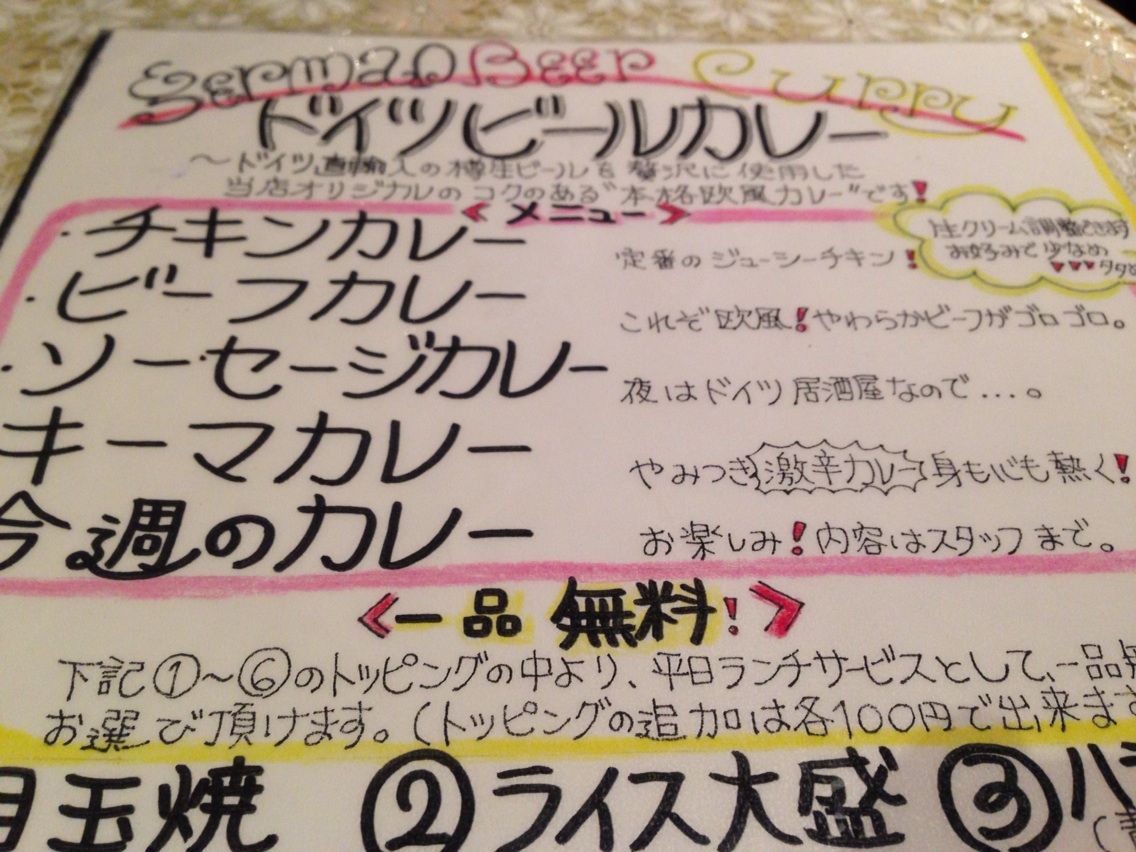 German Beer Curry
ドイツビールカレー
～ドイツ直輸入の樽生ビールを贅沢に使用した
当店オリジナルのコクのある"本格欧風カレー"です!
<メニュー>
生クリーム調整できます
お好みで少なめ
・チキンカレー 定番のジューシーチキン!
・ビーフカレー これぞ欧風!やわらかビーフがゴロゴロ。
・ソーセージカレー 夜はドイツ居酒屋なので...。
キーマカレー やみつき激辛カレー身も心も熱く!
今週のカレー お楽しみ!内容はスタッフまで。
<一品無料!>
下記①～⑥のトッピングの中より、平日ランチサービスとして、一品無
お選び頂けます。(トッピングの追加は各100円で出来ます
目玉焼 ②ライス大盛 ③ハ